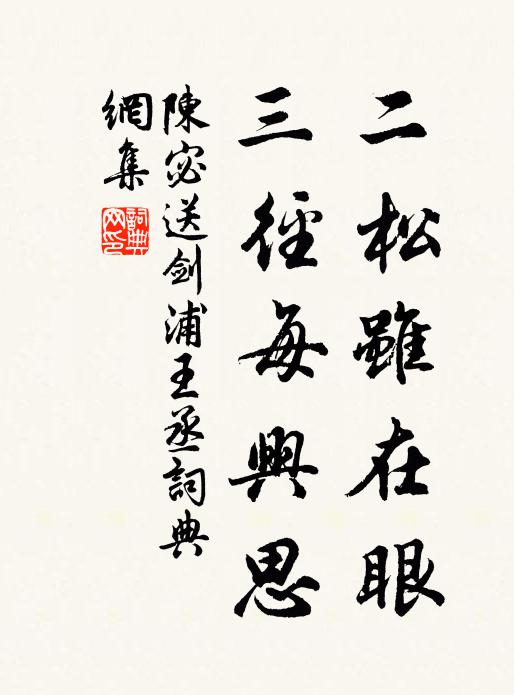 二松雖在眼
三徑每興思
陳宓送剑浦王丞詞典
網集
詞典
网印